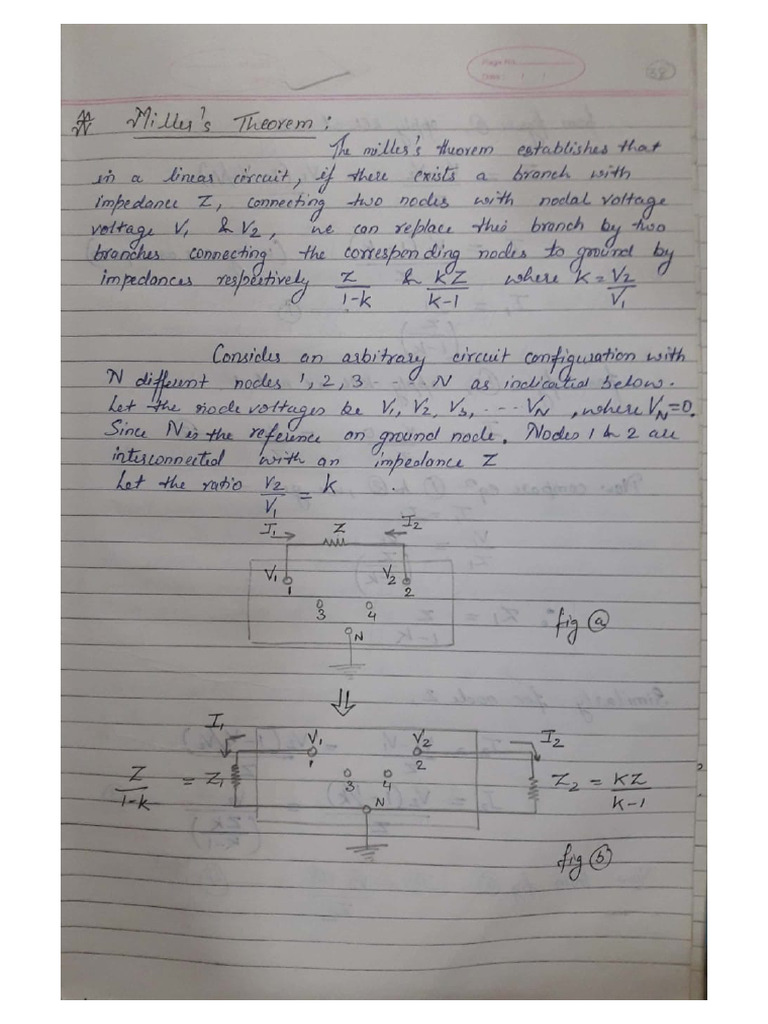 Page No.
Date: / /
38
Miller's Theorem:
The miller's theorem establishes that
in a linear circuit, if there exists a branch with
impedance Z, connecting two nodes with nodal voltage
voltage V1 & V2, we can replace this branch by two
branches connecting the corresponding nodes to ground by
impedances respectively Z/1-k & KZ/k-1 where K = V2/V1
Consider an arbitrary circuit configuration with
N different nodes 1, 2, 3 ----- N as indicated below.
Let the node voltages be V1, V2, V3, ---- VN, where VN=0.
Since N is the reference on ground node. Nodes 1 & 2 are
interconnected with an impedance Z
Let the ratio V2/V1 = k
I1 Z I2
V1 V2
1 2
3 4
N
fig (a)
⇓
I1 V1 V2 I2
1 2
Z/1-k = Z1 3 4 Z2 = KZ/k-1
N
fig (b)